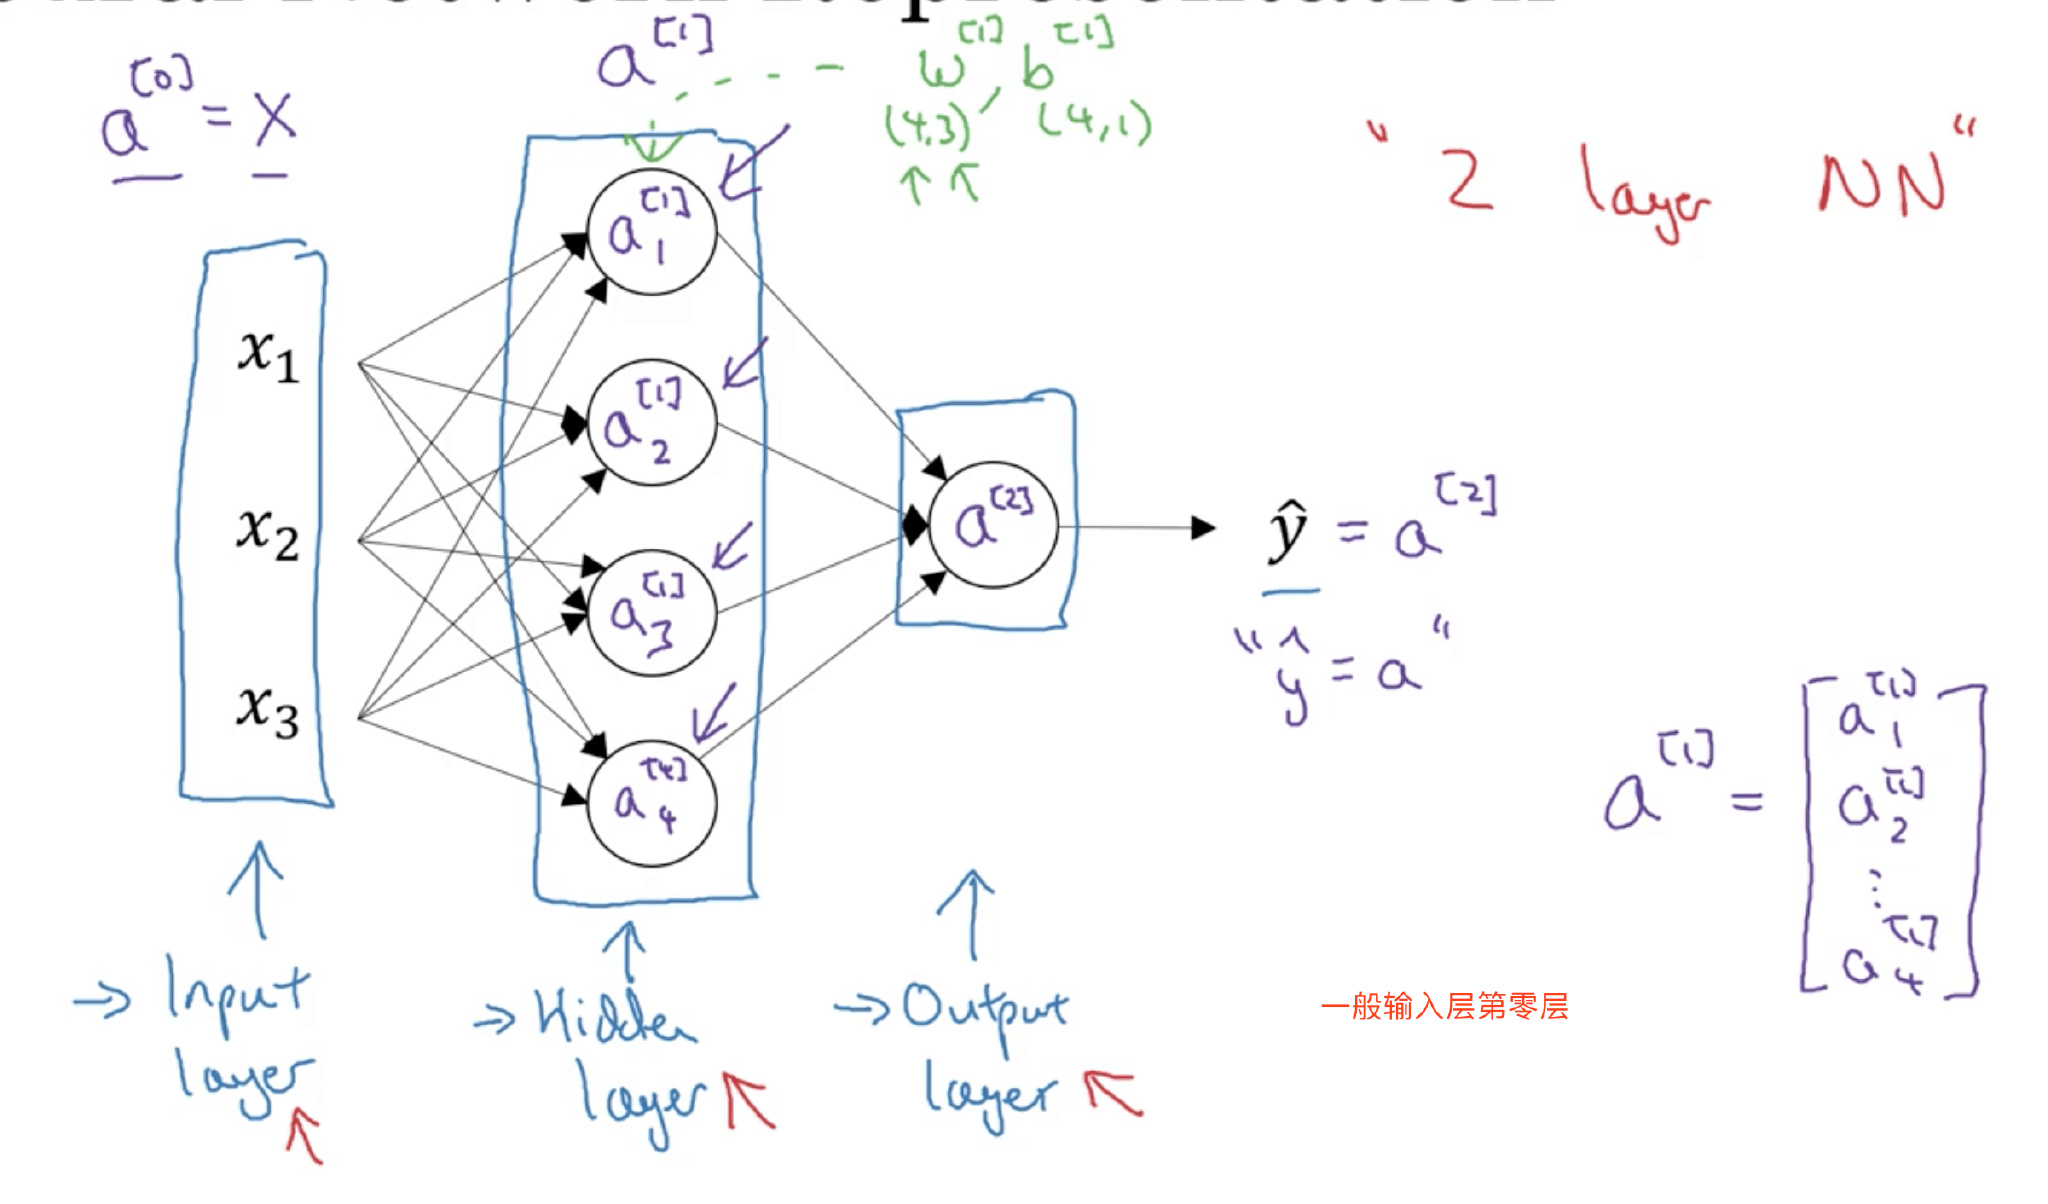 a^[0] = X
a^[1]
w^[1], b^[1]
(4,3) (4,1)
"2 layer NN"
x₁
x₂
x₃
a₁^[1]
a₂^[1]
a₃^[1]
a₄^[4]
a^[2]
ŷ = a^[2]
"ŷ = a"
a^[1] = [a₁^[1]
a₂^[1]
⋮
a₄^[1]]
→ Input
layer
→ Hidden
layer
→ Output
layer
一般输入层第零层